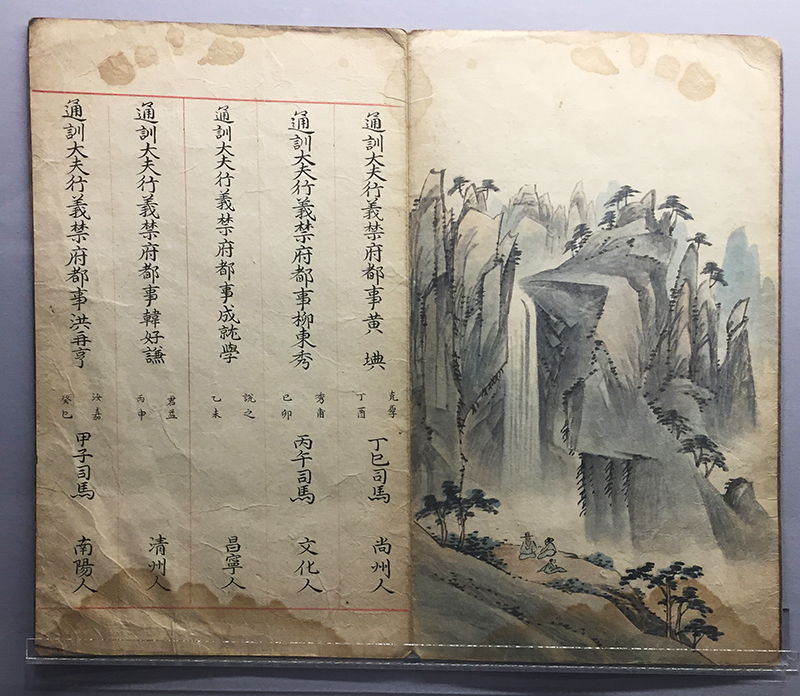 通訓大夫行義禁府都事黃㙉 克厚 丁酉 丁巳司馬 尚州人
通訓大夫行義禁府都事柳東秀 秀甫 己卯 丙午司馬 文化人
通訓大夫行義禁府都事成就學 說之 乙未 昌寧人
通訓大夫行義禁府都事韓好謙 君益 丙申 清州人
通訓大夫行義禁府都事洪再亨 汝嘉 癸巳 甲子司馬 南陽人